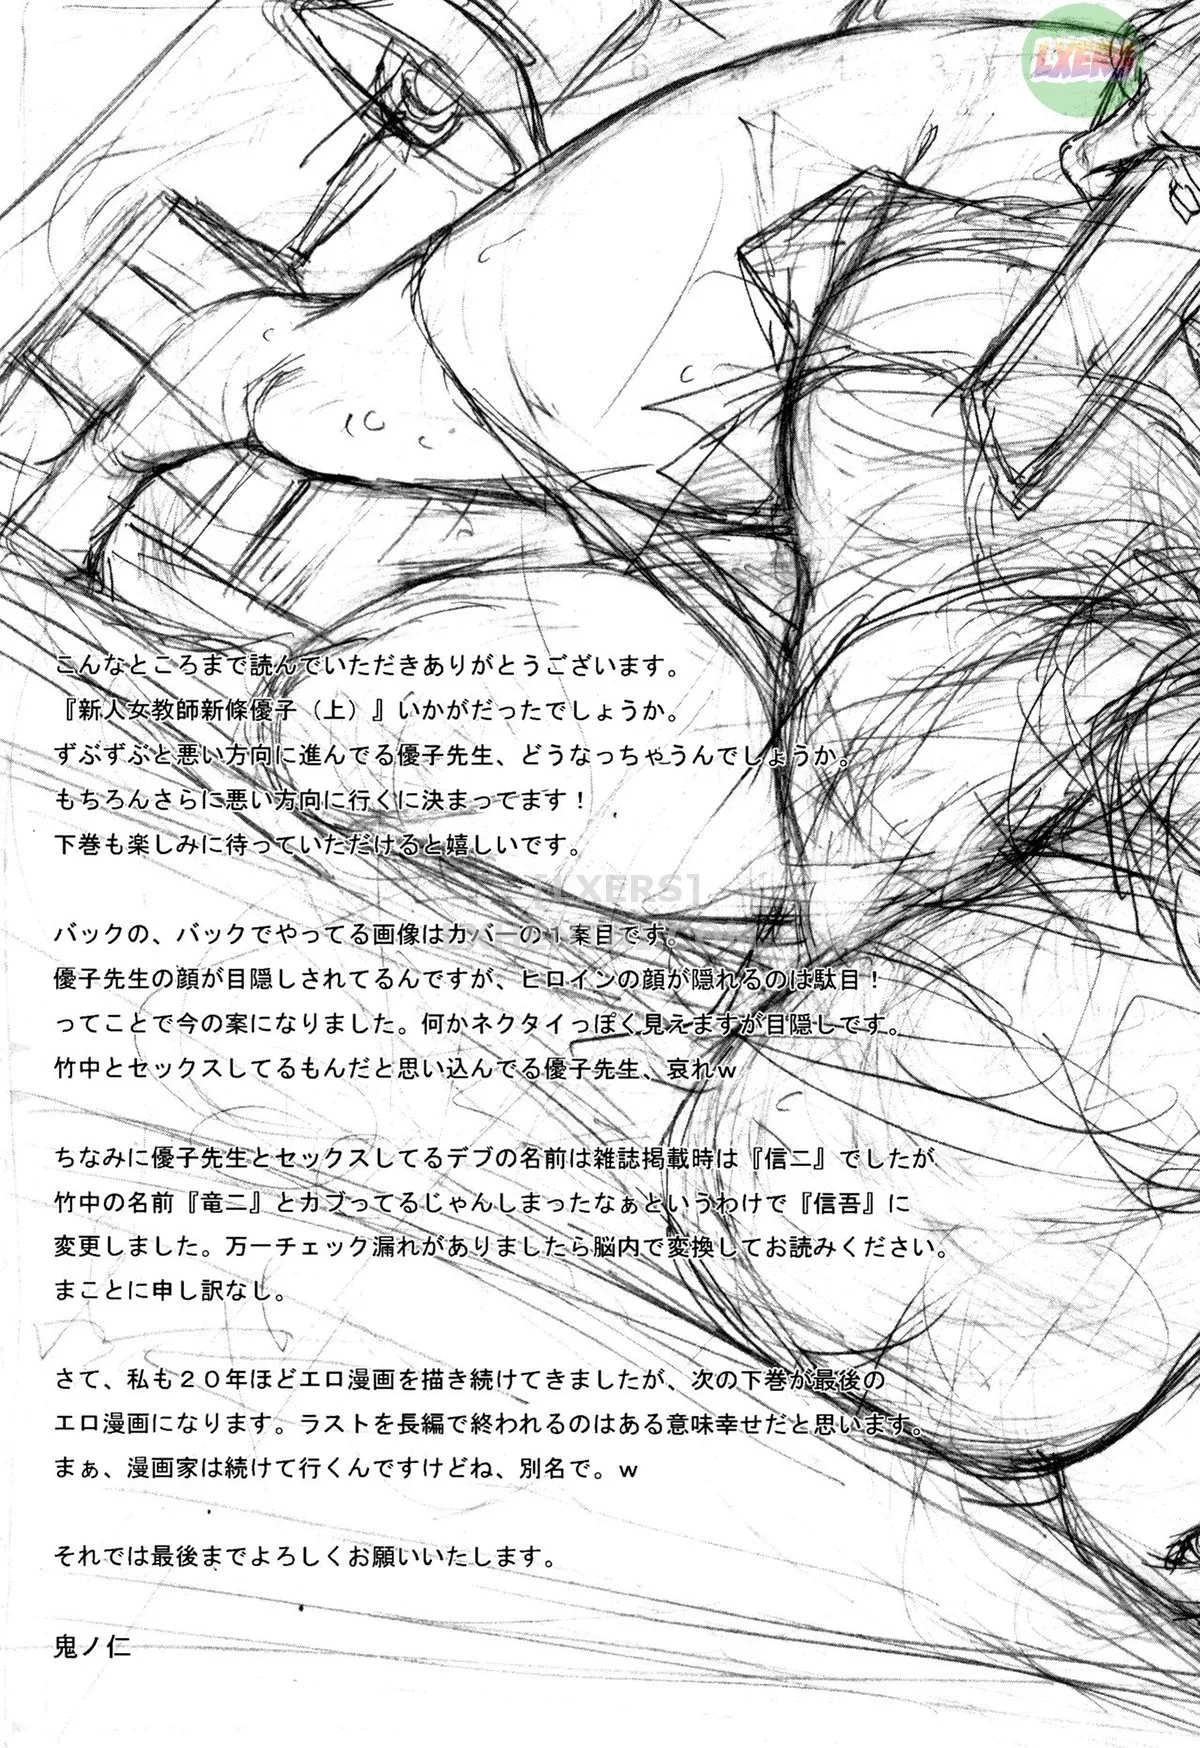 LXERS
こんなところまで読んでいただきありがとうございます。
『新人女教師新條優子（上）』いかがだったでしょうか。
ずぶずぶと悪い方向に進んでる優子先生、どうなっちゃうんでしょうか。
もちろんさらに悪い方向に行くに決まってます！
下巻も楽しみに待っていただけると嬉しいです。
[LXERS]
バックの、バックでやってる画像はカバーの１案目です。
優子先生の顔が目隠しされてるんですが、ヒロインの顔が隠れるのは駄目！
ってことで今の案になりました。何かネクタイっぽく見えますが目隠しです。
竹中とセックスしてるもんだと思い込んでる優子先生、哀れｗ
ちなみに優子先生とセックスしてるデブの名前は雑誌掲載時は『信二』でしたが
竹中の名前『竜二』とカブってるじゃんしまったなぁというわけで『信吾』に
変更しました。万一チェック漏れがありましたら脳内で変換してお読みください。
まことに申し訳なし。
さて、私も２０年ほどエロ漫画を描き続けてきましたが、次の下巻が最後の
エロ漫画になります。ラストを長編で終われるのはある意味幸せだと思います。
まぁ、漫画家は続けて行くんですけどね、別名で。ｗ
それでは最後までよろしくお願いいたします。
鬼ノ仁